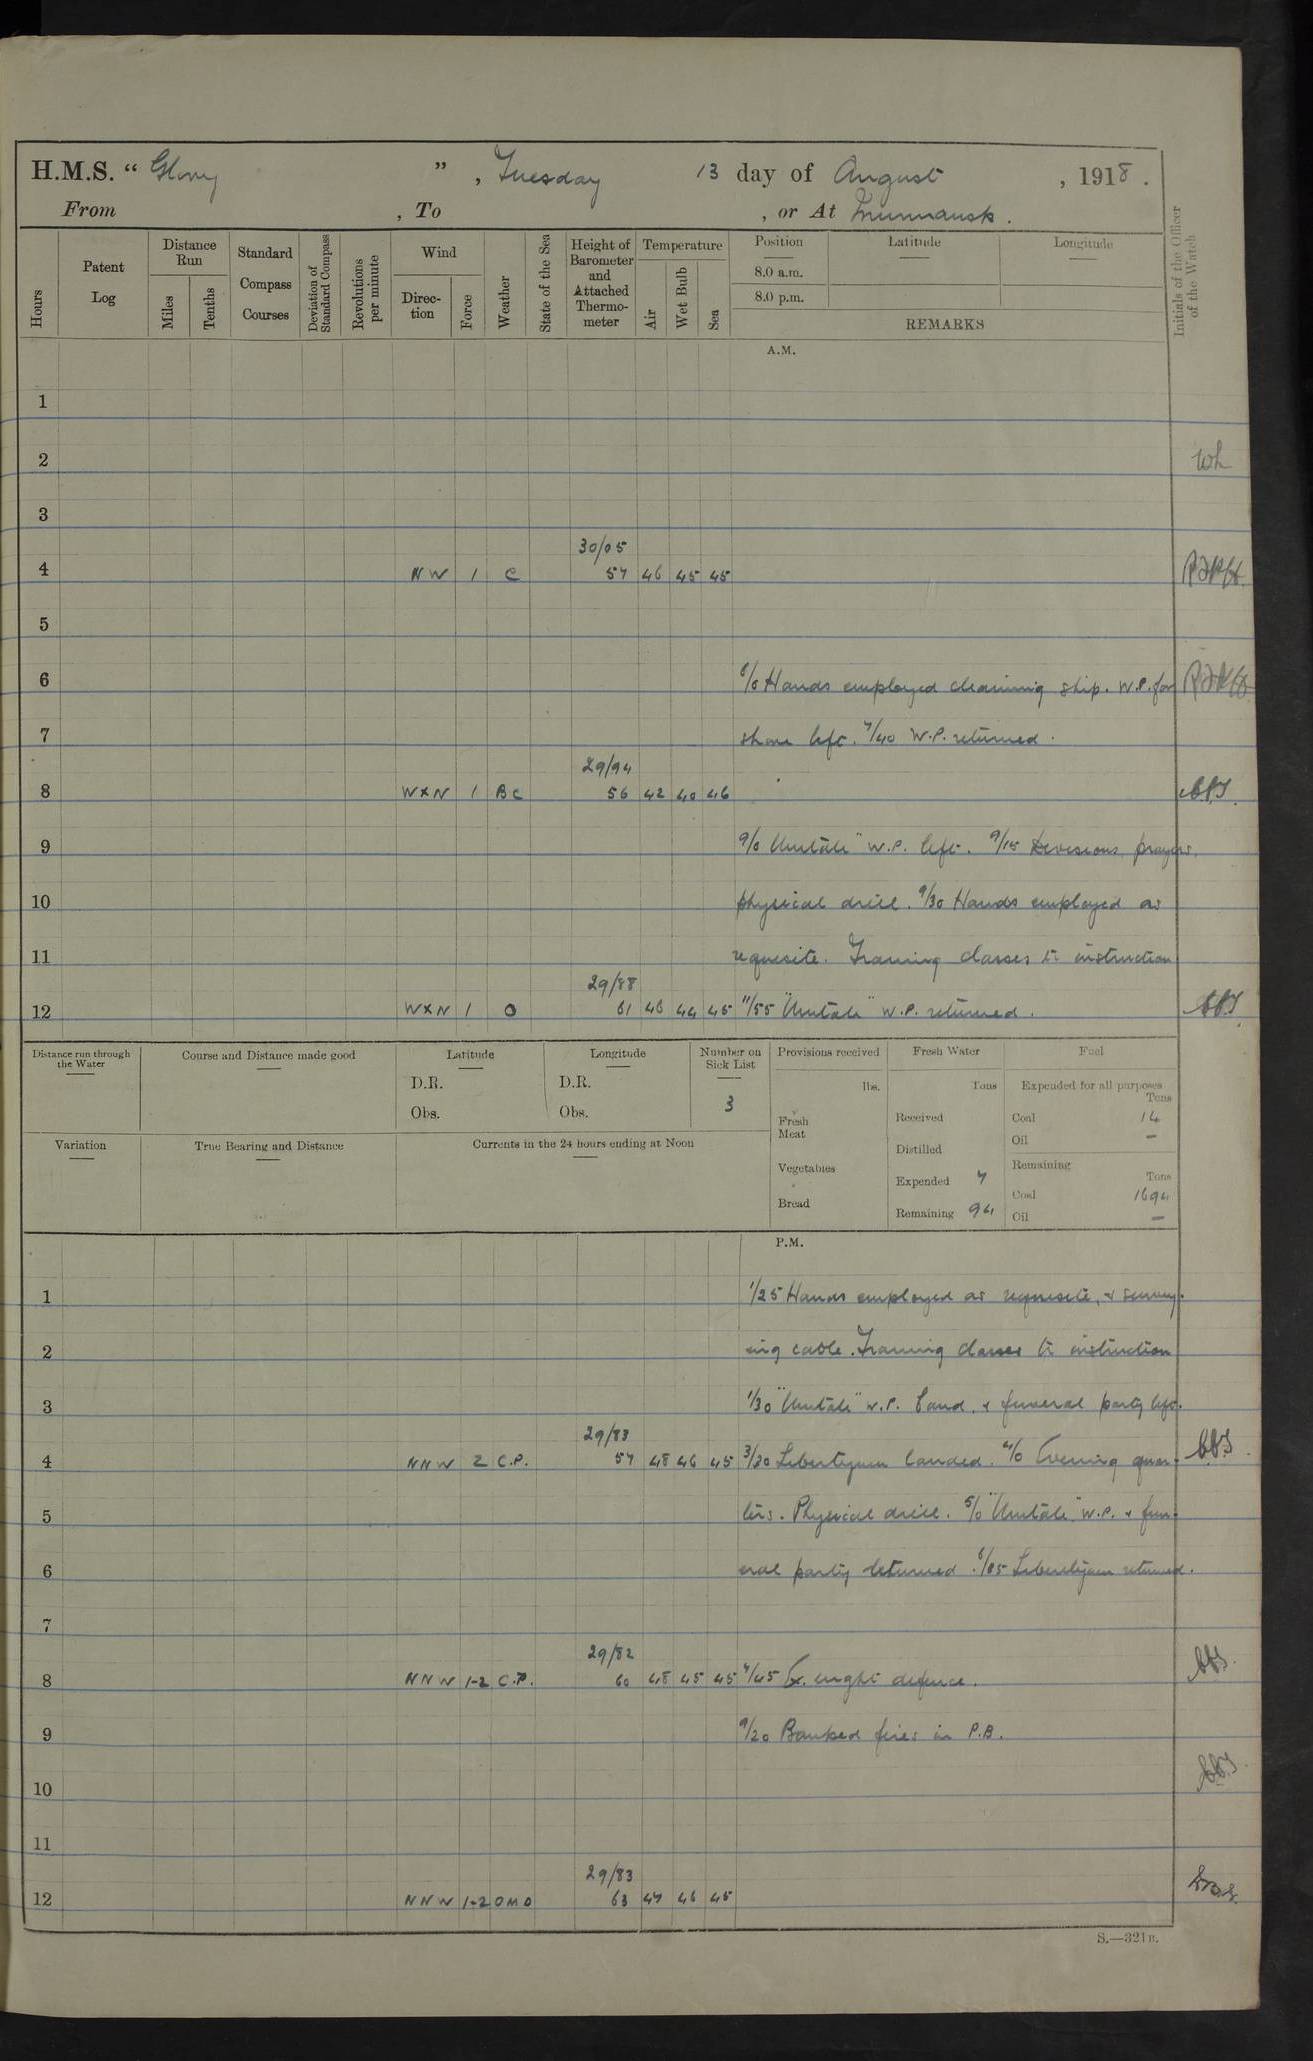 H.M.S. “ Glory ” , Tuesday 13 day of August , 1918 .
From , To , or At Murmansk .
Hours
Patent Log
Distance Run
Miles
Tenths
Standard Compass Courses
Deviation of Standard Compass
Revolutions per minute
Wind
Direc-tion
Force
Weather
State of the Sea
Height of Barometer and Attached Thermo-meter
Temperature
Air
Wet Bulb
Sea
Position
8.0 a.m.
8.0 p.m.
Latitude
Longitude
REMARKS
Initials of the Officer of the Watch
A.M.
1
2
3
30/05
4 NW 1 C 57 46 45 45
5
6 6/0 Hands employed cleaning ship. W.P. for
7 shore left. 7/40 W.P. returned.
29/94
8 W×N 1 BC 56 42 40 46
9 9/0 "Umtali" W.P. left. 9/15 Divisions, prayers,
10 physical drill. 9/30 Hands employed as
11 requisite. Training classes to instruction
29/88
12 W×N 1 O 61 46 44 45 11/55 "Umtali" W.P. returned.
Distance run through the Water
Course and Distance made good
Latitude
D.R.
Obs.
Longitude
D.R.
Obs.
Number on Sick List
3
Provisions received
lbs.
Fresh Meat
Vegetables
Bread
Fresh Water
Tons
Received
Distilled
Expended 7
Remaining 94
Fuel
Expended for all purposes
Tons
Coal 14
Oil –
Remaining
Tons
Coal 1694
Oil –
Variation
True Bearing and Distance
Currents in the 24 hours ending at Noon
P.M.
1 1/25 Hands employed as requisite, &
2 ing cable. Training classes to instruction
3 1/30 "Umtali" W.P. band, & funeral party left.
29/83
4 NNW 2 C.P. 57 48 46 45 3/30 Libertymen landed. 4/0 Evening quar-
5 ters. Physical drill. 5/0 "Umtali" W.P. & fun-
6 eral party returned. 6/05 Libertymen returned.
7
29/82
8 NNW 1-2 C.P. 60 48 45 45 7/45 Ex. night defence.
9 9/20 Banked fires in P.B.
10
11
29/83
12 NNW 1-2 OMD 63 47 46 45
S.—321B.